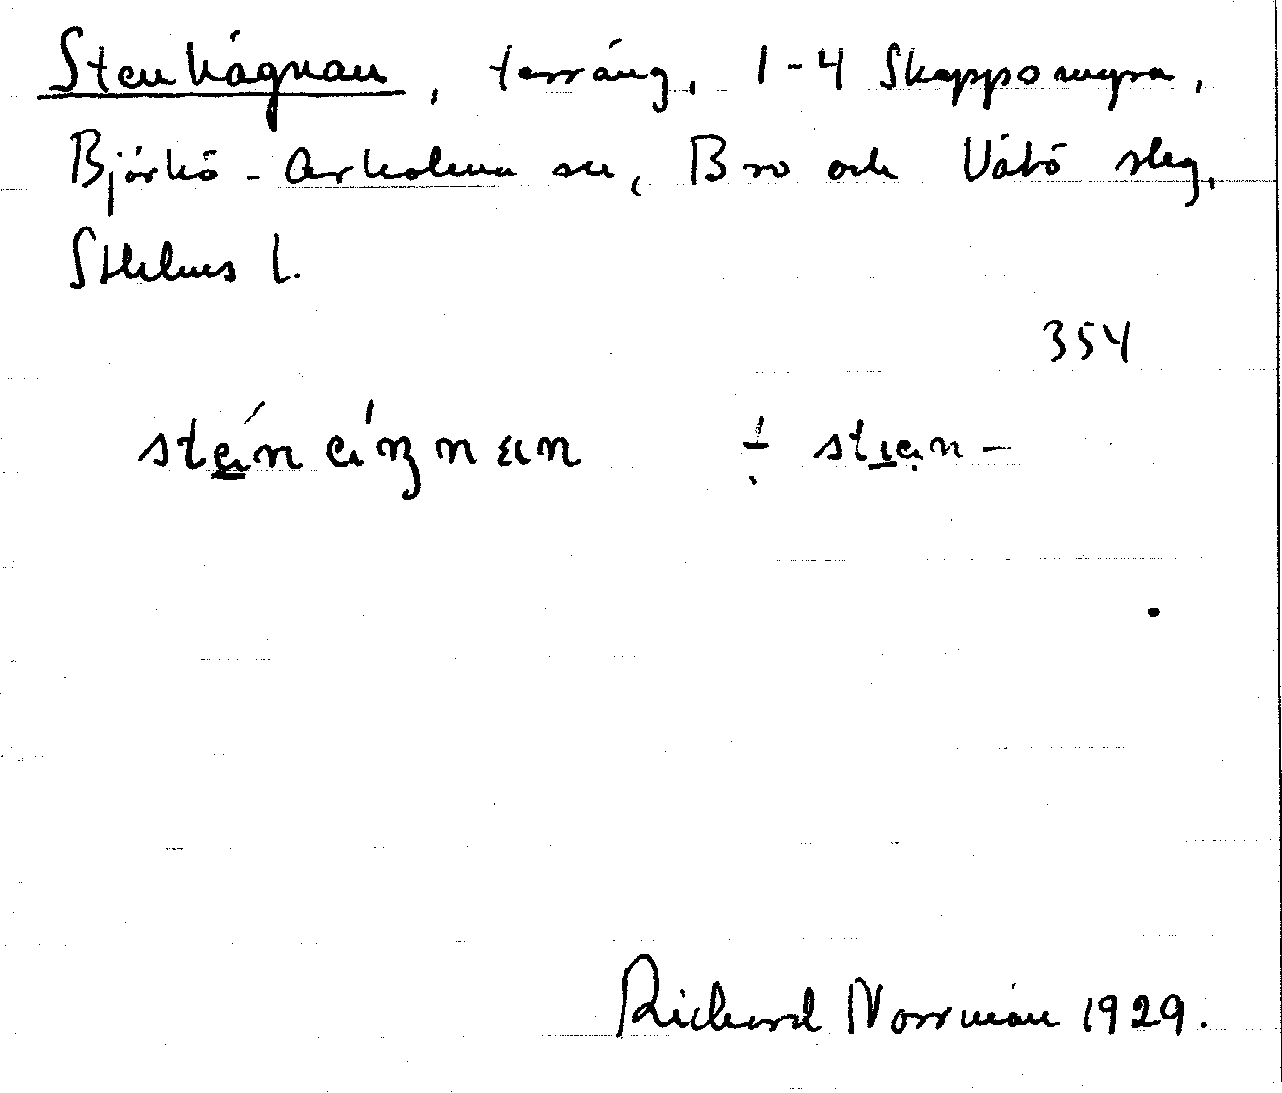 Stenhägnan, terräng, 1-4 Skeppsmyra,
Björkö-Arholma sn, Bro och Vätö sklg,
Sthlms l.
354
Richard Norrman 1929.